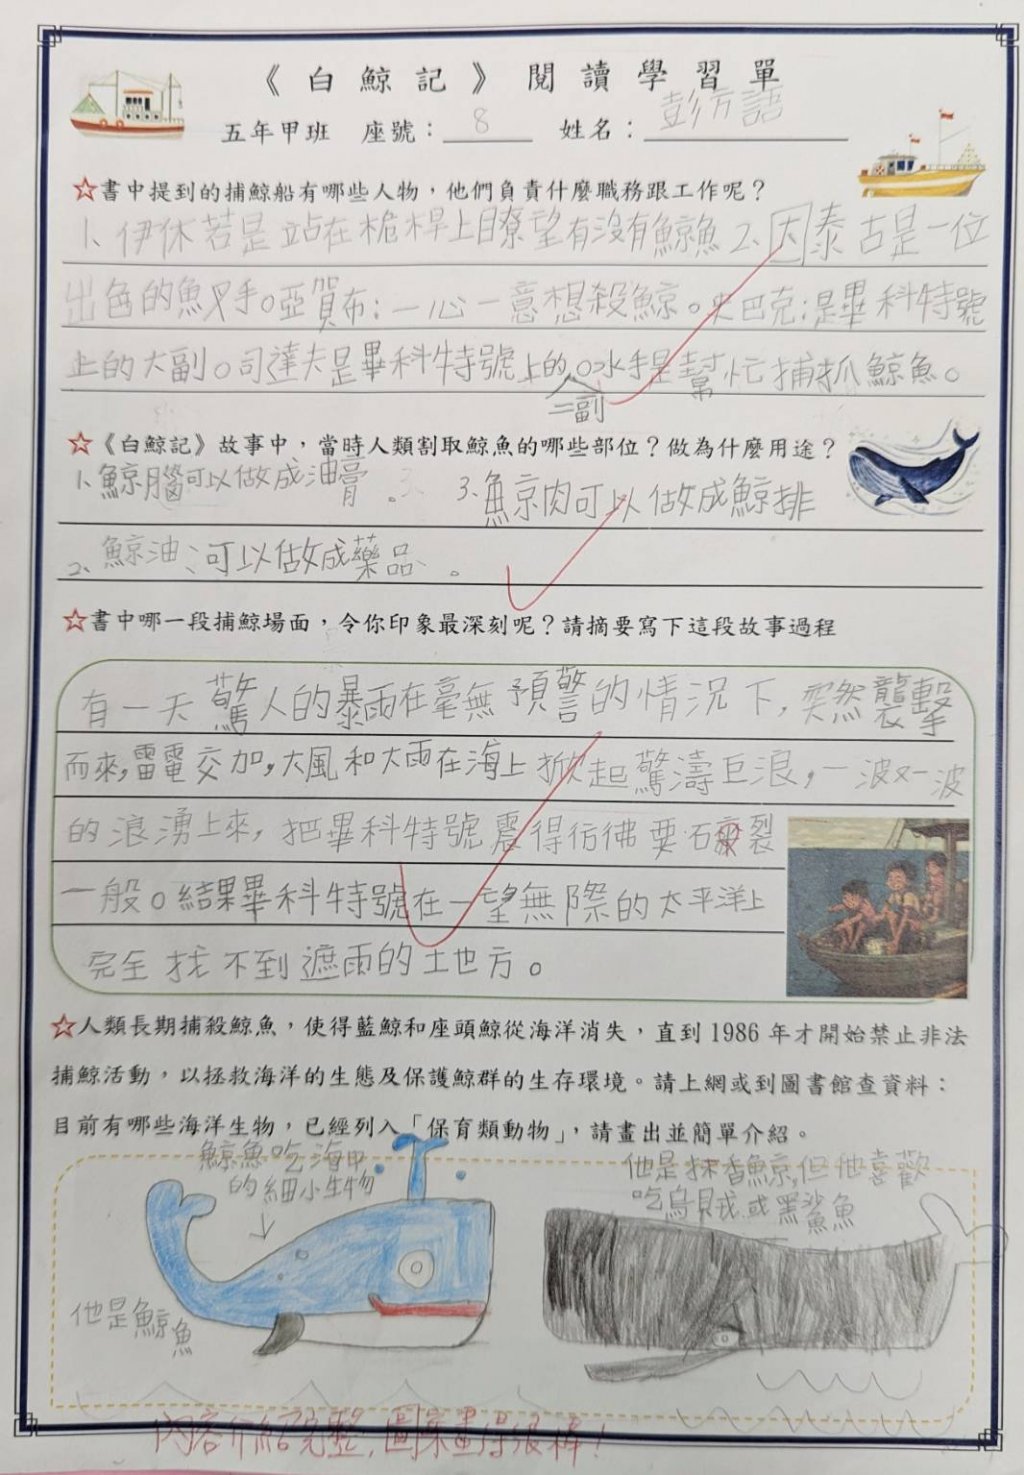 《白鯨記》閱讀學習單
五年甲班 座號：8 姓名：彭方語
☆書中提到的捕鯨船有哪些人物，他們負責什麼職務跟工作呢？
1、伊休若是站在桅桿上瞭望有沒有鯨魚2、因泰古是一位
出色的魚叉手。亞賀布：一心一意想殺鯨。史巴克：是畢科特號
上的大副。司達夫是畢科特號上的。水手是幫忙捕抓鯨魚。
二副
☆《白鯨記》故事中，當時人類割取鯨魚的哪些部位？做為什麼用途？
1、鯨腦可以做成油膏。 3、鯨肉可以做成鯨排
2、鯨油、可以做成藥品、。
☆書中哪一段捕鯨場面，令你印象最深刻呢？請摘要寫下這段故事過程
有一天驚人的暴雨在毫無預警的情況下，突然襲擊
而來，雷電交加，大風和大雨在海上掀起驚濤巨浪，一波又一波
的浪湧上來，把畢科特號震得彷彿要裂
一般。結果畢科特號在一望無際的太平洋上
完全找不到遮雨的土地方。
☆人類長期捕殺鯨魚，使得藍鯨和座頭鯨從海洋消失，直到1986年才開始禁止非法
捕鯨活動，以拯救海洋的生態及保護鯨群的生存環境。請上網或到圖書館查資料：
目前有哪些海洋生物，已經列入「保育類動物」，請畫出並簡單介紹。
鯨魚吃海中
的細小生物
他是抹香鯨，但他喜歡
吃烏賊或黑鯊魚
他是鯨魚
內容介紹完整，圖案畫得很棒！